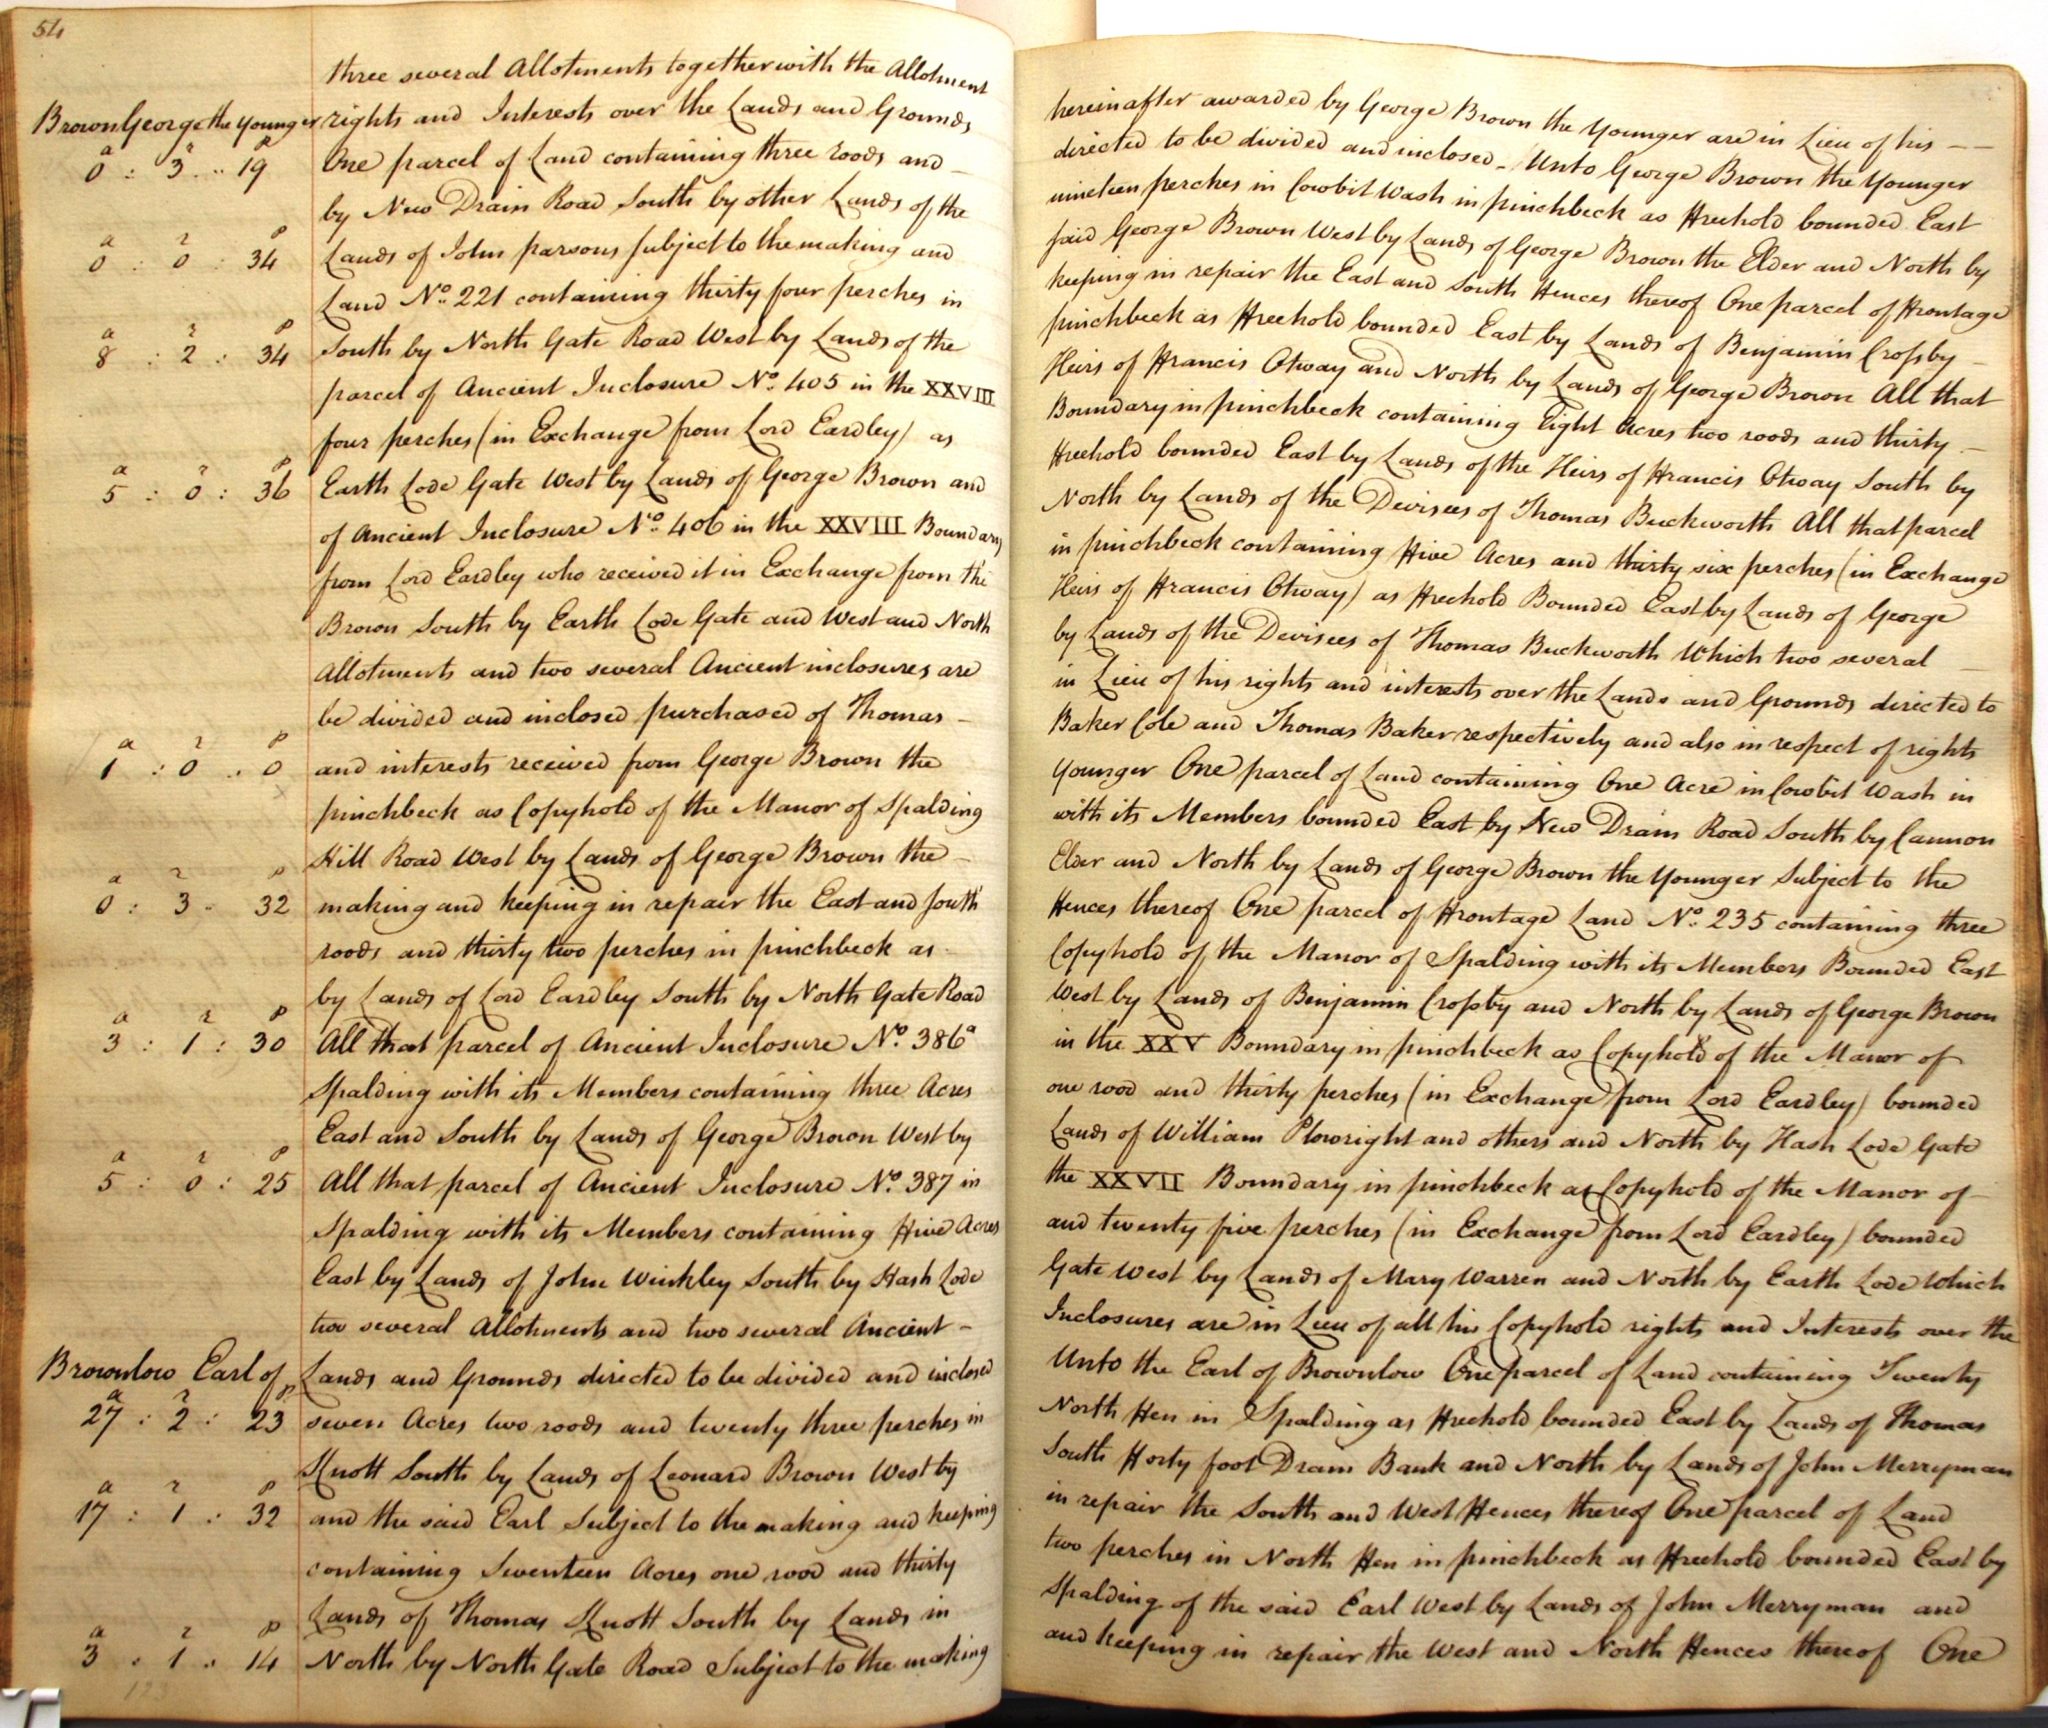 54
three several Allotments together with the Allotment hereinafter awarded by George Brown the Younger are in Lieu of his
Brown George the Younger
rights and Interests over the Lands and Grounds directed to be divided and inclosed - Unto George Brown the Younger
a r p
0 : 3 : 19
One parcel of Land containing three roods and nineteen perches in Cowbit Wash in pinchbeck as Freehold bounded East
by New Drain Road South by other Lands of the said George Brown West by Lands of George Brown the Elder and North by
a r p
0 : 0 : 34
Lands of John parsons subject to the making and keeping in repair the East and South Fences thereof One parcel of Frontage
Land No. 221 containing thirty four perches in pinchbeck as Freehold bounded East by Lands of Benjamin Cropby
a r p
8 : 2 : 34
South by North Gate Road West by Lands of the Heirs of Francis Otway and North by Lands of George Brown All that
parcel of Ancient Inclosure No. 405 in the XXVIII Boundary in pinchbeck containing Eight Acres two roods and thirty
four perches (in Exchange from Lord Eardley) as Freehold bounded East by Lands of the Heirs of Francis Otway South by
a r p
5 : 0 : 36
Earth Lode Gate West by Lands of George Brown and North by Lands of the Devisees of Thomas Buckworth All that parcel
of Ancient Inclosure No. 406 in the XXVIII Boundary in pinchbeck containing Five Acres and thirty six perches (in Exchange
from Lord Eardley who received it in Exchange from the Heirs of Francis Otway) as Freehold Bounded East by Lands of George
Brown South by Earth Lode Gate and West and North by Lands of the Devisees of Thomas Buckworth Which two several
Allotments and two several Ancient inclosures are in Lieu of his rights and interests over the Lands and Grounds directed to
be divided and inclosed purchased of Thomas Baker Cole and Thomas Baker respectively and also in respect of rights
a r p
1 : 0 : 0
and interests received from George Brown the Younger One parcel of Land containing One Acre in Cowbit Wash in
pinchbeck as Copyhold of the Manor of Spalding with its Members bounded East by New Drain Road South by Cannon
Hill Road West by Lands of George Brown the Elder and North by Lands of George Brown the Younger Subject to the
a r p
0 : 3 : 32
making and keeping in repair the East and South Fences thereof One parcel of Frontage Land No. 235 containing three
roods and thirty two perches in pinchbeck as Copyhold of the Manor of Spalding with its Members Bounded East
by Lands of Lord Eardley South by North Gate Road West by Lands of Benjamin Cropby and North by Lands of George Brown
a r p
3 : 1 : 30
All that parcel of Ancient Inclosure No. 386a in the XXV Boundary in pinchbeck as Copyhold of the Manor of
Spalding with its Members containing three Acres one rood and thirty perches (in Exchange from Lord Eardley) bounded
East and South by Lands of George Brown West by Lands of William Plowright and others and North by Hash Lode Gate
a r p
5 : 0 : 25
All that parcel of Ancient Inclosure No. 387 in the XXVII Boundary in pinchbeck as Copyhold of the Manor of
Spalding with its Members containing Five Acres and twenty five perches (in Exchange from Lord Eardley) bounded
East by Lands of John Winkley South by Hash Lode Gate West by Lands of Mary Warren and North by Earth Lode Which
two several Allotments and two several Ancient Inclosures are in Lieu of all his Copyhold rights and Interests over the
Brownlow Earl of
Lands and Grounds directed to be divided and inclosed Unto the Earl of Brownlow One parcel of Land containing Twenty
a r p
27 : 2 : 23
seven Acres two roods and twenty three perches in North Fen in Spalding as Freehold bounded East by Lands of Thomas
Knott South by Lands of Leonard Brown West by South Forty foot Drain Bank and North by Lands of John Merryman
a r p
17 : 1 : 32
and the said Earl Subject to the making and keeping in repair the South and West Fences thereof One parcel of Land
containing Seventeen Acres one rood and thirty two perches in North Fen in pinchbeck as Freehold bounded East by
Lands of Thomas Knott South by Lands in Spalding of the said Earl West by Lands of John Merryman and
a r p
3 : 1 : 14
North by North Gate Road Subject to the making and keeping in repair the West and North Fences thereof One